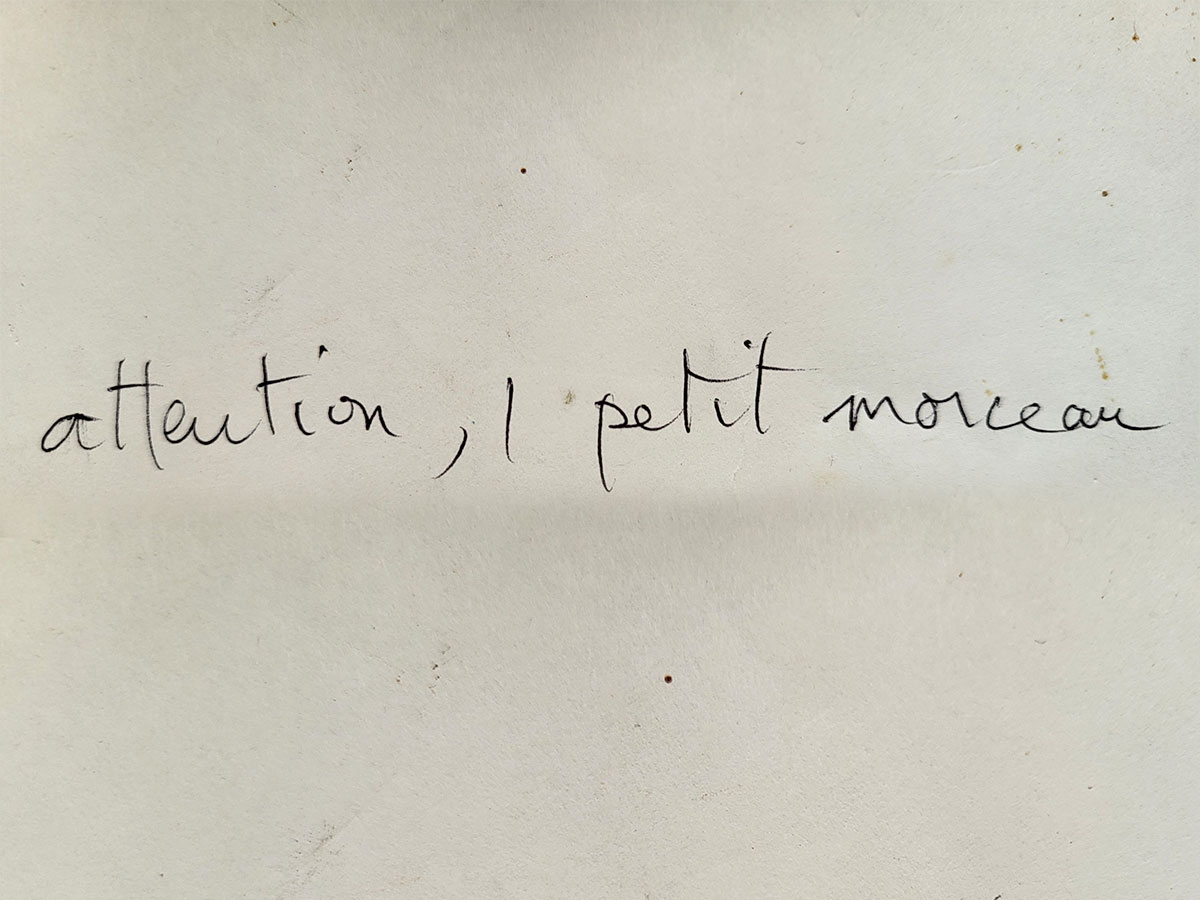 attention, 1 petit morceau